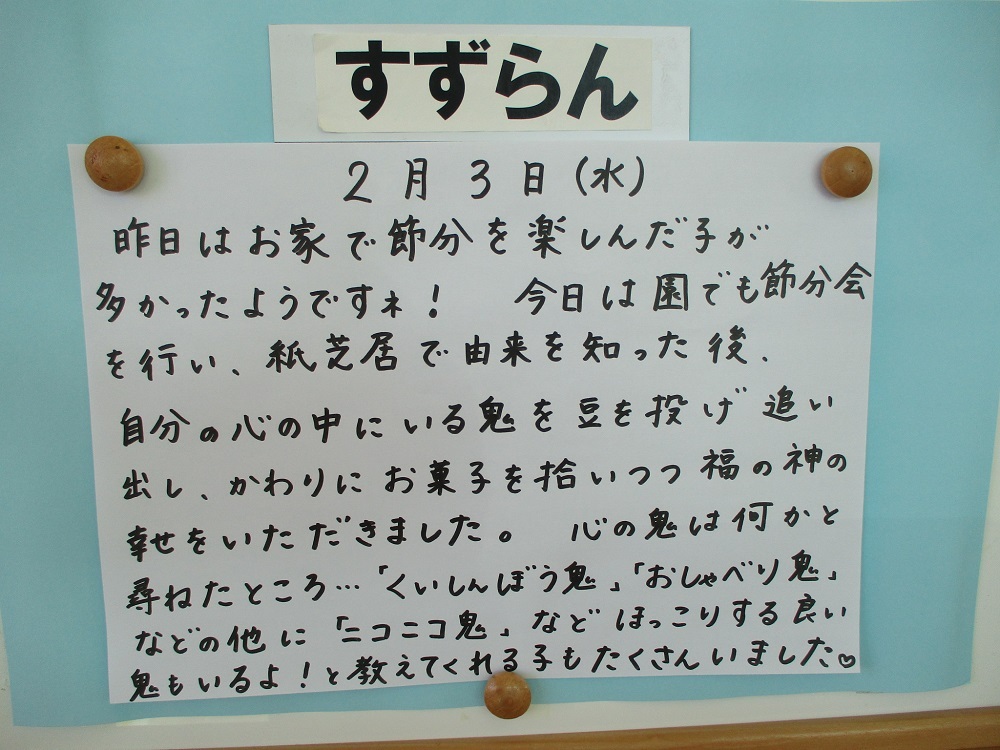 すずらん
2月3日(水)
昨日はお家で節分を楽しんだ子が
多かったようですネ! 今日は園でも節分会
を行い、紙芝居で由来を知った後、
自分の心の中にいる鬼を豆を投げ追い
出し、かわりにお菓子を拾いつつ福の神の
幸せをいただきました。 心の鬼は何かと
尋ねたところ…「くいしんぼう鬼」「おしゃべり鬼」
などの他に「ニコニコ鬼」などほっこりする良い
鬼もいるよ!と教えてくれる子もたくさんいました♡